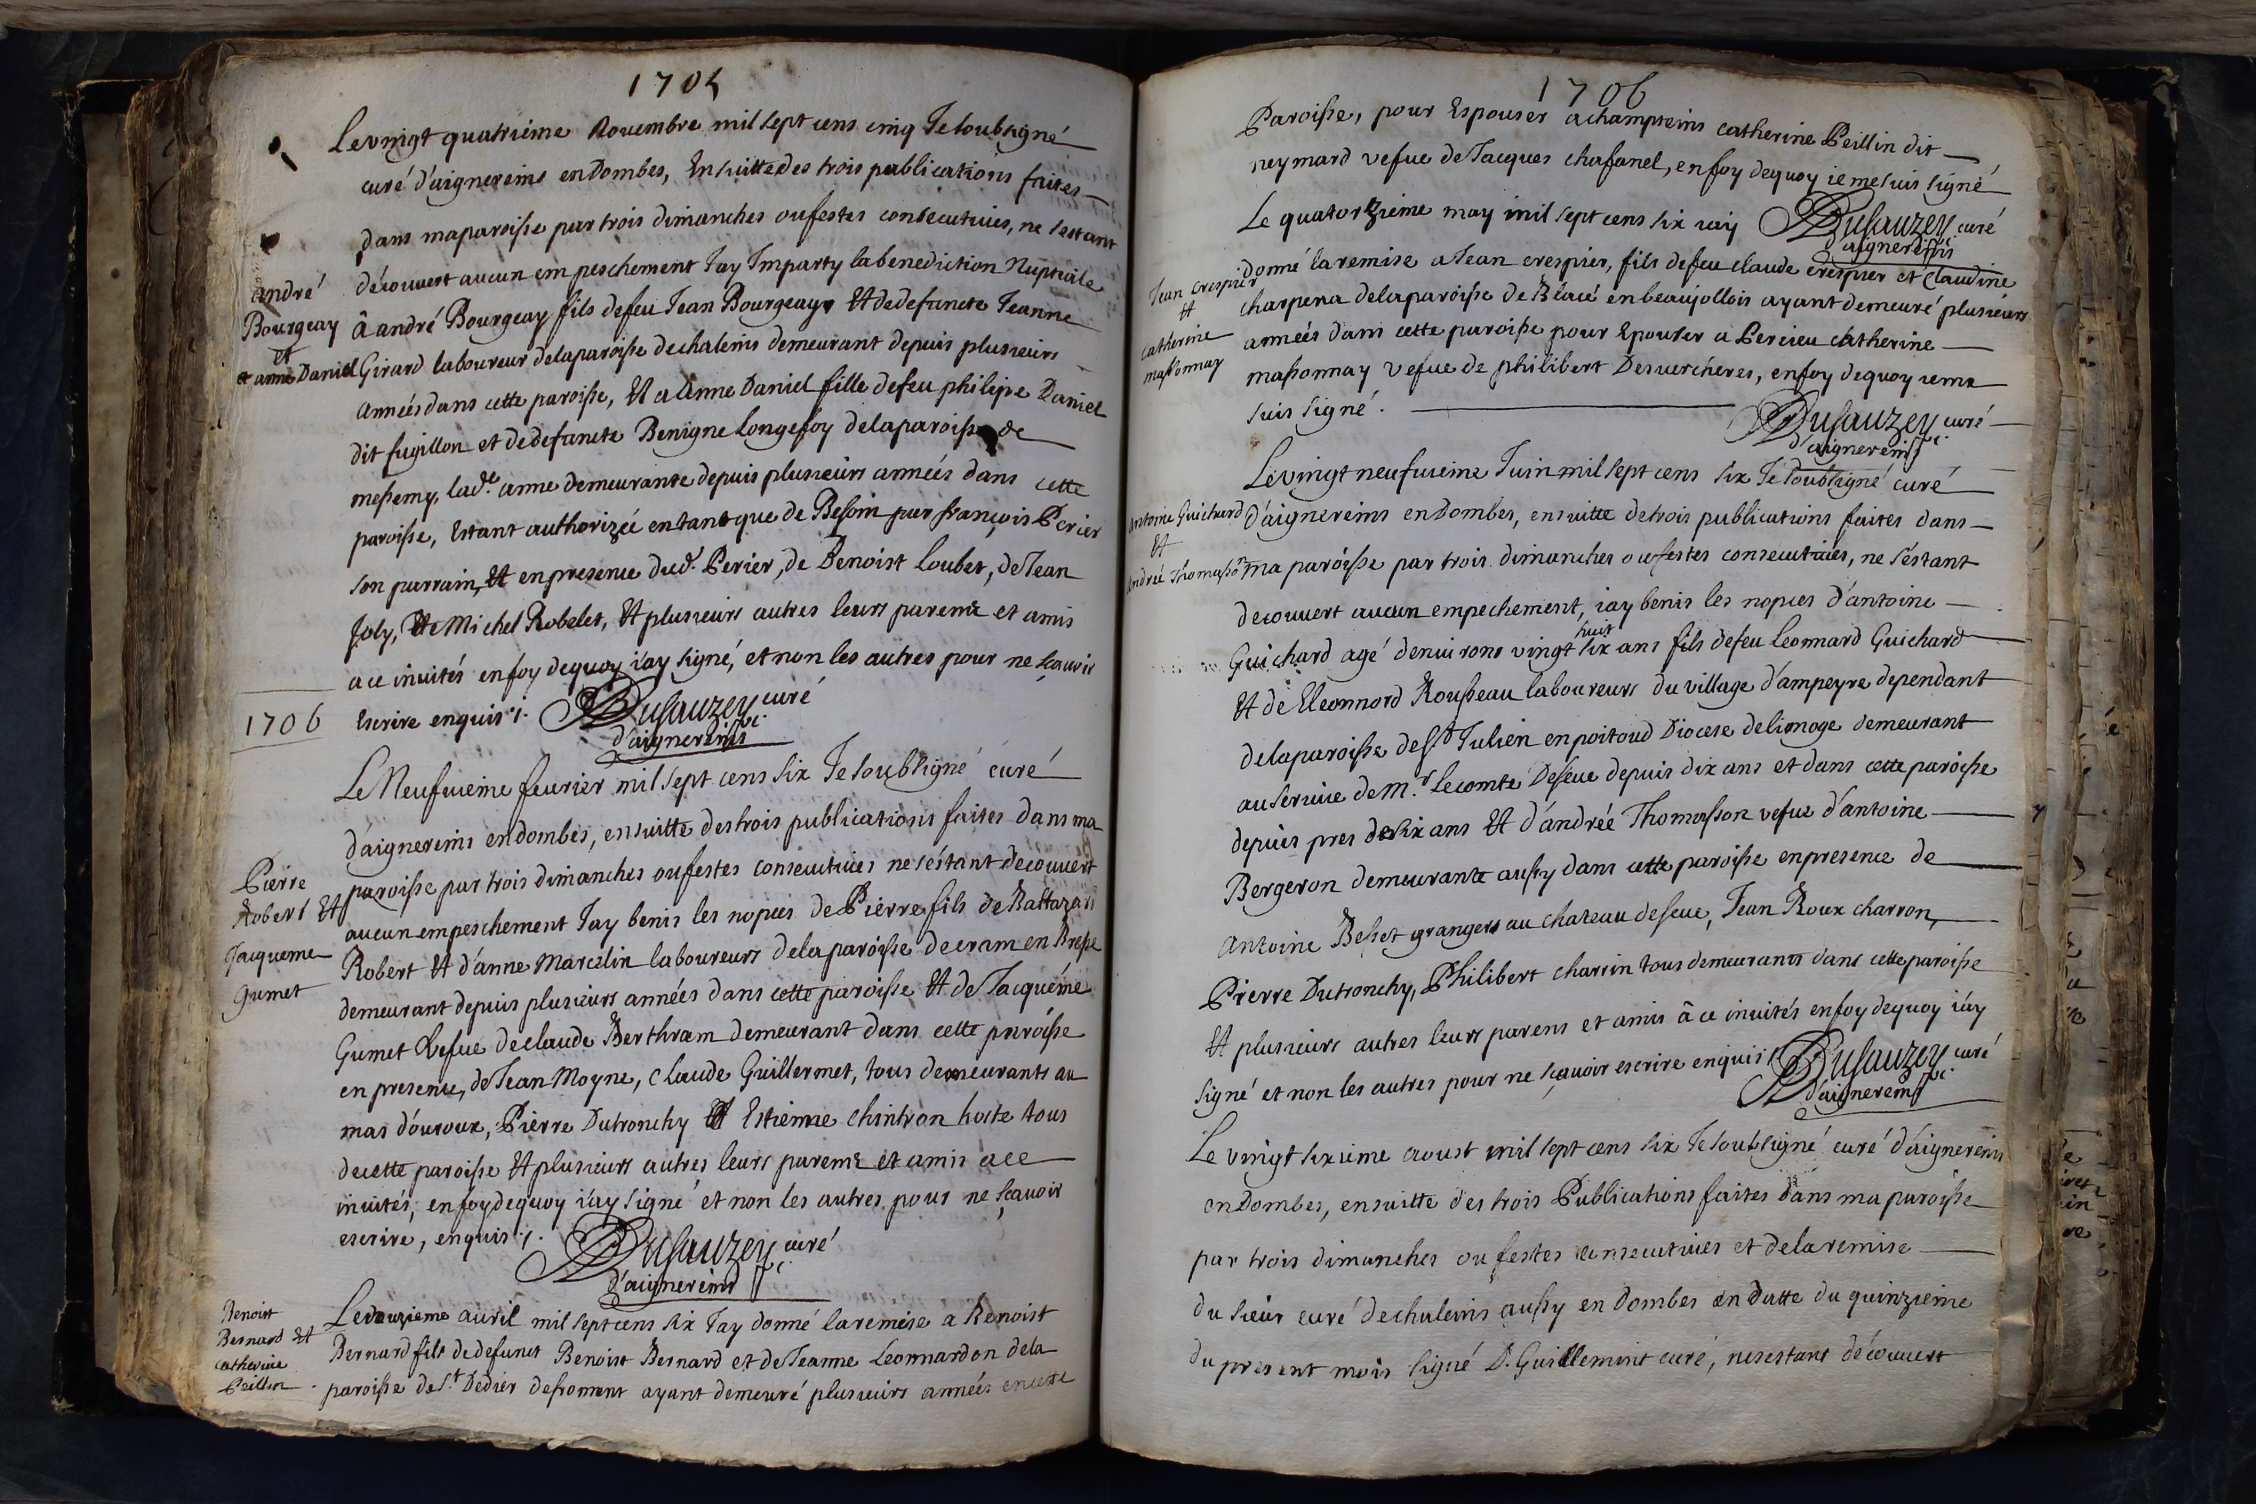 1705
Le vingt quatrieme Novembre mil sept cens cinq Je soubsigné
curé d'aignereins en Dombes, Ensuitte des trois publications faites
dans ma paroisse par trois dimanches ou festes consecutiues, ne s'estant
découuert aucun empeschement Jay Imparty la benediction Nuptiale
andré
Bourgeay
et
et anne Daniel
â andré Bourgeay fils de feu Jean Bourgeay Et de defuncte Jeanne
Girard laboureur de la paroisse de chaleins demeurant depuis plusieurs
années dans cette paroisse, Et a Anne Daniel fille de feu philipe Daniel
dit fugillon et de defuncte Benigne Longefoy de la paroisse de
messemy, lad.e anne demeurante depuis plusieurs années dans cette
paroisse, Estant authorizée en tant que de Besoin par françois Perier
son parrain, Et en presence dud. Perier, de Benoist Loubet, de Jean
Joly, Et Michel Robelet, Et plusieurs autres leurs parens et amis
a ce inuités en foy dequoy i'ay signé, et non les autres pour ne sçauoir
Escrire enquis ./.
Dusauzey curé
d'aignereins
1706
Le Neufuieme feurier mil sept cens six Je soubsigné curé
d'aignereins en dombes, ensuitte des trois publications faites dans ma
paroisse par trois dimanches ou festes consecutiues ne s'éstant decouuert
Pierre
Robert Et
Jacqueme
Gumet
aucun empeschement Jay benis les nopces de Pierre fils de Baltazard
Robert Et d'anne Marcelin laboureurs de la paroisse de cram en Bresse
demeurant depuis plusieurs années dans cette paroisse Et de Jacquéme
Gumet Vefue de claude Berthram demeurant dans cette paroisse
en presence, de Jean Moyne, Claude Guillermet, tous demeurants au
mas d'ouroux, Pierre Dutronchy Et Estienne Chintron hoste tous
de cette paroisse Et plusieurs autres leurs parens et amis a ce
inuités, en foy dequoy i'ay signé et non les autres pour ne sçauoir
escrire, enquis ./.
Dusauzey curé
d'aignereins
Benoist
Bernard Et
catherine
Peillin
Le douzieme auril mil sept cens six Jay donné la remise a Benoist
Bernard fils de defunct Benoist Bernard et de Jeanne Leonnardon de la
paroisse de S.t Dédier de froment ayant demeuré plusieurs années en cette
1706
Paroisse, pour Espouser a champteins catherine Peillin dit
neymard vefue de Jacques chafanel, en foy dequoy ie me suis signé
Dusauzey curé
d'aignereins
Le quatorzieme may mil sept cens six iay
Jean Crespier
Et
Catherine
massonnay
donné la remise a Jean crespier, fils de feu claude crespier et claudine
charpena de la paroisse de Blacé en beaujollois ayant demeuré plusieurs
années dans cette paroisse pour Epouser a Percieu catherine
massonnay vefue de philibert Desuerchéres, en foy dequoy ie me
suis signé.
Dusauzey curé
d'aignereins
Le vingt neufuieme Juin mil sept cens six Je soubsigné curé
Antoine Guichard
Et
Andrée Thomasson
d'aignereins en Dombes, ensuitte de trois publications faites dans
ma paroisse par trois dimanches ou festes consecutiues, ne s'éstant
decouuert aucun empechement, iay benis les nopces d'antoine
Guichard agé d'enuirons vingt six huit ans fils de feu Leonnard Guichard
Et de Eleonnord Rousseau laboureurs du village d'ampeyre dependant
de la paroisse de S.t Julien en poitoud Diocese de limoge demeurant
au seruice de M.r Le comte Deseue depuis dix ans et dans cette paroisse
depuis pres de six ans Et d'andrée Thomasson vefue d'antoine
Bergeron demeurante aussy dans cette paroisse en presence de
Antoine Besset grangers au chateau de seue, Jean Roux charron,
Pierre Dutronchy, Philibert charrin tous demeurants dans cette paroisse
Et plusieurs autres leurs parens et amis â ce inuités en foy dequoy i'ay
signé et non les autres pour ne sçauoir escrire enquis ./.
Dusauzey curé
d'aignereins
Le vingt sixieme aoust mil sept cens six Je soubsigné curé d'aignereins
en Dombes, ensuitte des trois Publications faites dans ma paroisse
par trois dimanches ou festes consecutiues et de la remise
du sieur curé de chaleins aussy en Dombes en Datte du quinzieme
du present mois signé D. Guillemint curé, ne s'estant découuert